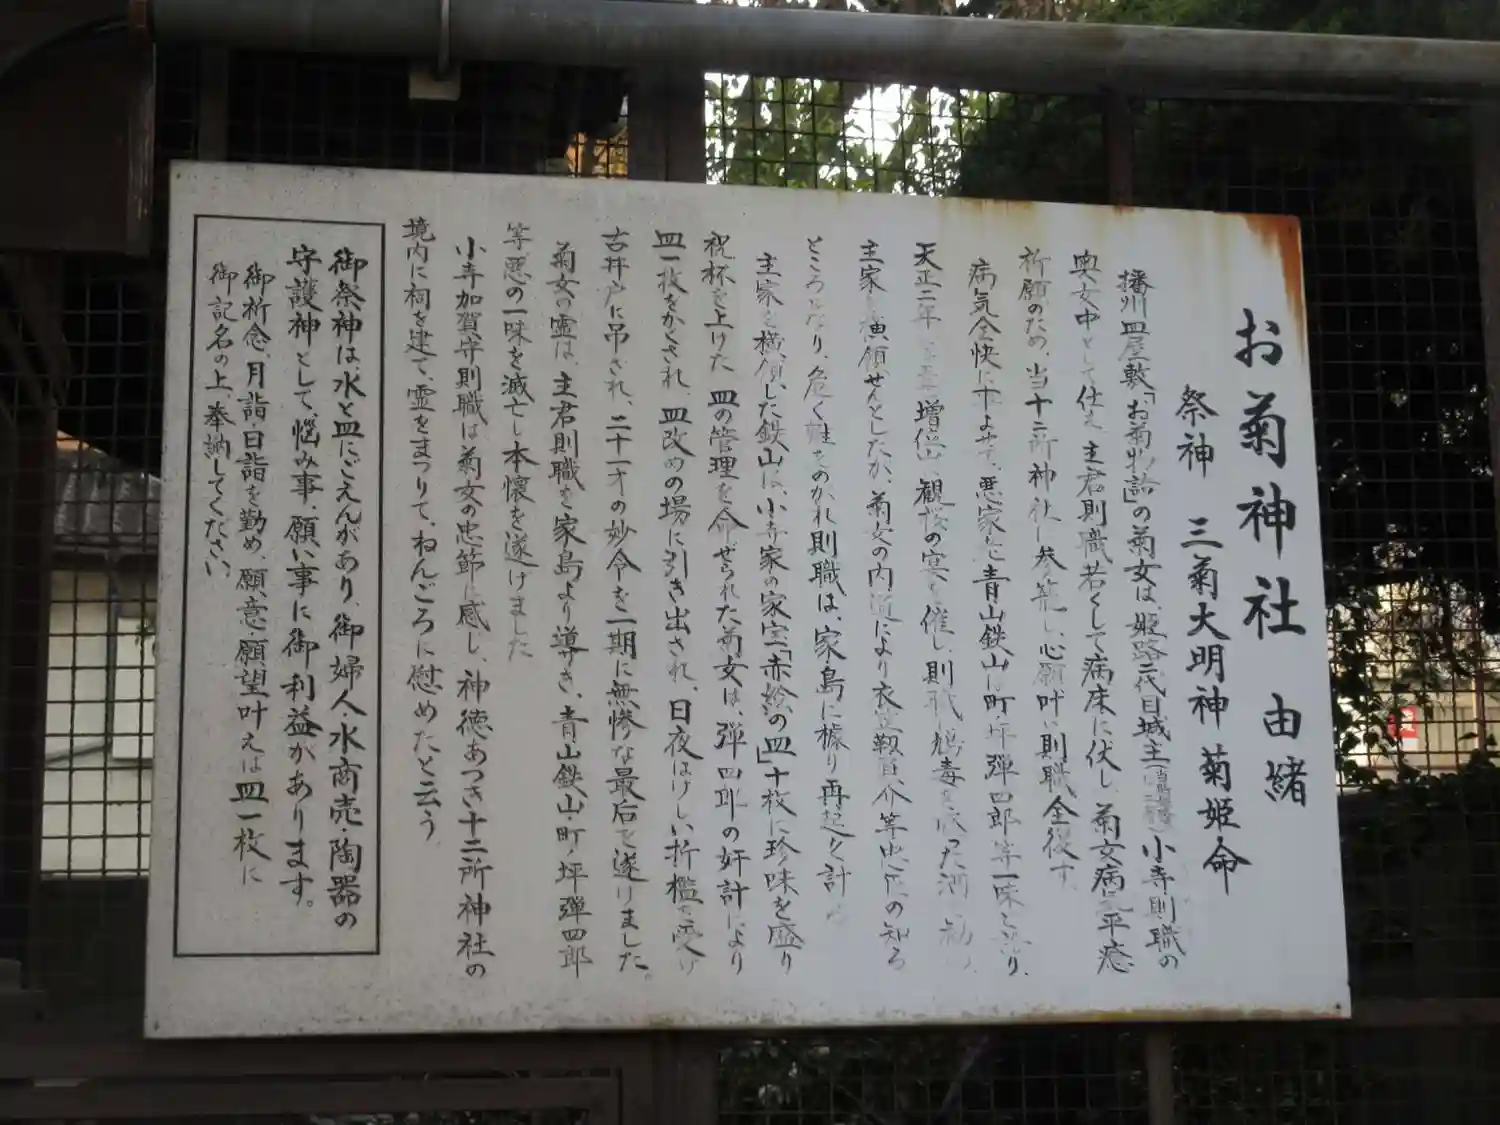 お菊神社 由緒
祭神 三菊大明神 菊姫命
播州皿屋敷「お菊物語」の菊女は、姫路二代目城主 小寺則職の
奥女中として仕え 主君則職若くして病床に伏し、菊女病気平癒
祈願のため、当十二所神社に参篭し、心願叶い則職全復す。
病気全快に 悪家老青山鉄山は町坪弾四郎等一味と 
天正二年 増位山に観桜の宴を催し、則職に鴆毒を 酒 
主家を横領せんとしたが、菊女の内通により衣笠靱負介等忠臣の知る
ところとなり、危く難をのがれ則職は、家島に據り再起を計る
主家を横領した鉄山は、小寺家の家宝「赤絵の皿」十枚に珍味を盛り
祝杯を上げた 皿の管理を命ぜられた菊女は、弾四郎の奸計により
皿一枚をかくされ、皿改めの場に引き出され、日夜はげしい折檻を受け
古井戸に吊され、二十一才の妙令を一期に無惨な最后を遂げました。
菊女の霊は、主君則職を家島より導き、青山鉄山・町坪弾四郎
等悪の一味を滅亡し本懐を遂げました
小寺加賀守則職は菊女の忠節に感し、神徳あつき十二所神社の
境内に祠を建て、霊をまつりて、ねんごろに慰めたと云う
御祭神は、水と皿にごえんがあり、御婦人・水商売・陶器の
守護神として、悩み事、願い事に御利益があります。
御祈念、月詣・日詣を勤め、願意、願望叶えば皿一枚に
御記名の上、奉納してください